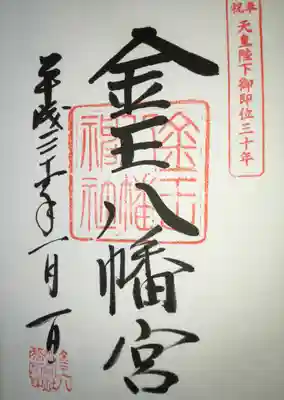 奉祝
天皇陛下御即位三十年
金王八幡宮
金王
八幡
神社
平成三十一年一月一日